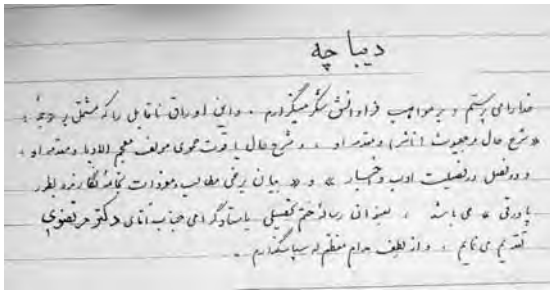 دیباچه
خدارا می پرستم و بر مواهب فراوانش شکر میگزارم . و این اوراق ناقابل را که مشتمل بر
«شرح حال مرجلیوث (ناشر) و مقدمه او » ، و شرح حال یاقوت حموی مولف معجم الادبا و مقدمه او ،
و دو فصل در فضیلت ادب و اخبار » و « بیان برخی مطالب و مفردات بطور
پاورقی » می باشد ، بعنوان رساله ختم تحصیلی باستاد گرامی جناب آقای دکتر مرتضوی
تقدیم می نمایم ، و از لطف مدام معظم له سپاسگذارم .